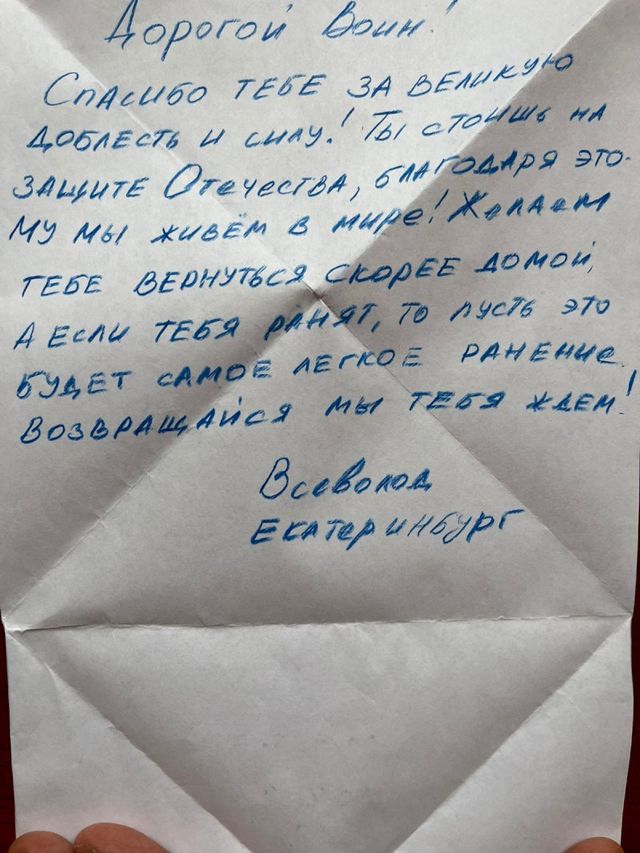 Дорогой Воин!
Спасибо тебе за великую
доблесть и силу! Ты стоишь на
защите Отечества, благодаря это-
му мы живём в мире! Желаем
тебе вернуться скорее домой,
а если тебя ранят, то пусть это
будет самое легкое ранение.
Возвращайся мы тебя ждем!
Всеволод
Екатеринбург